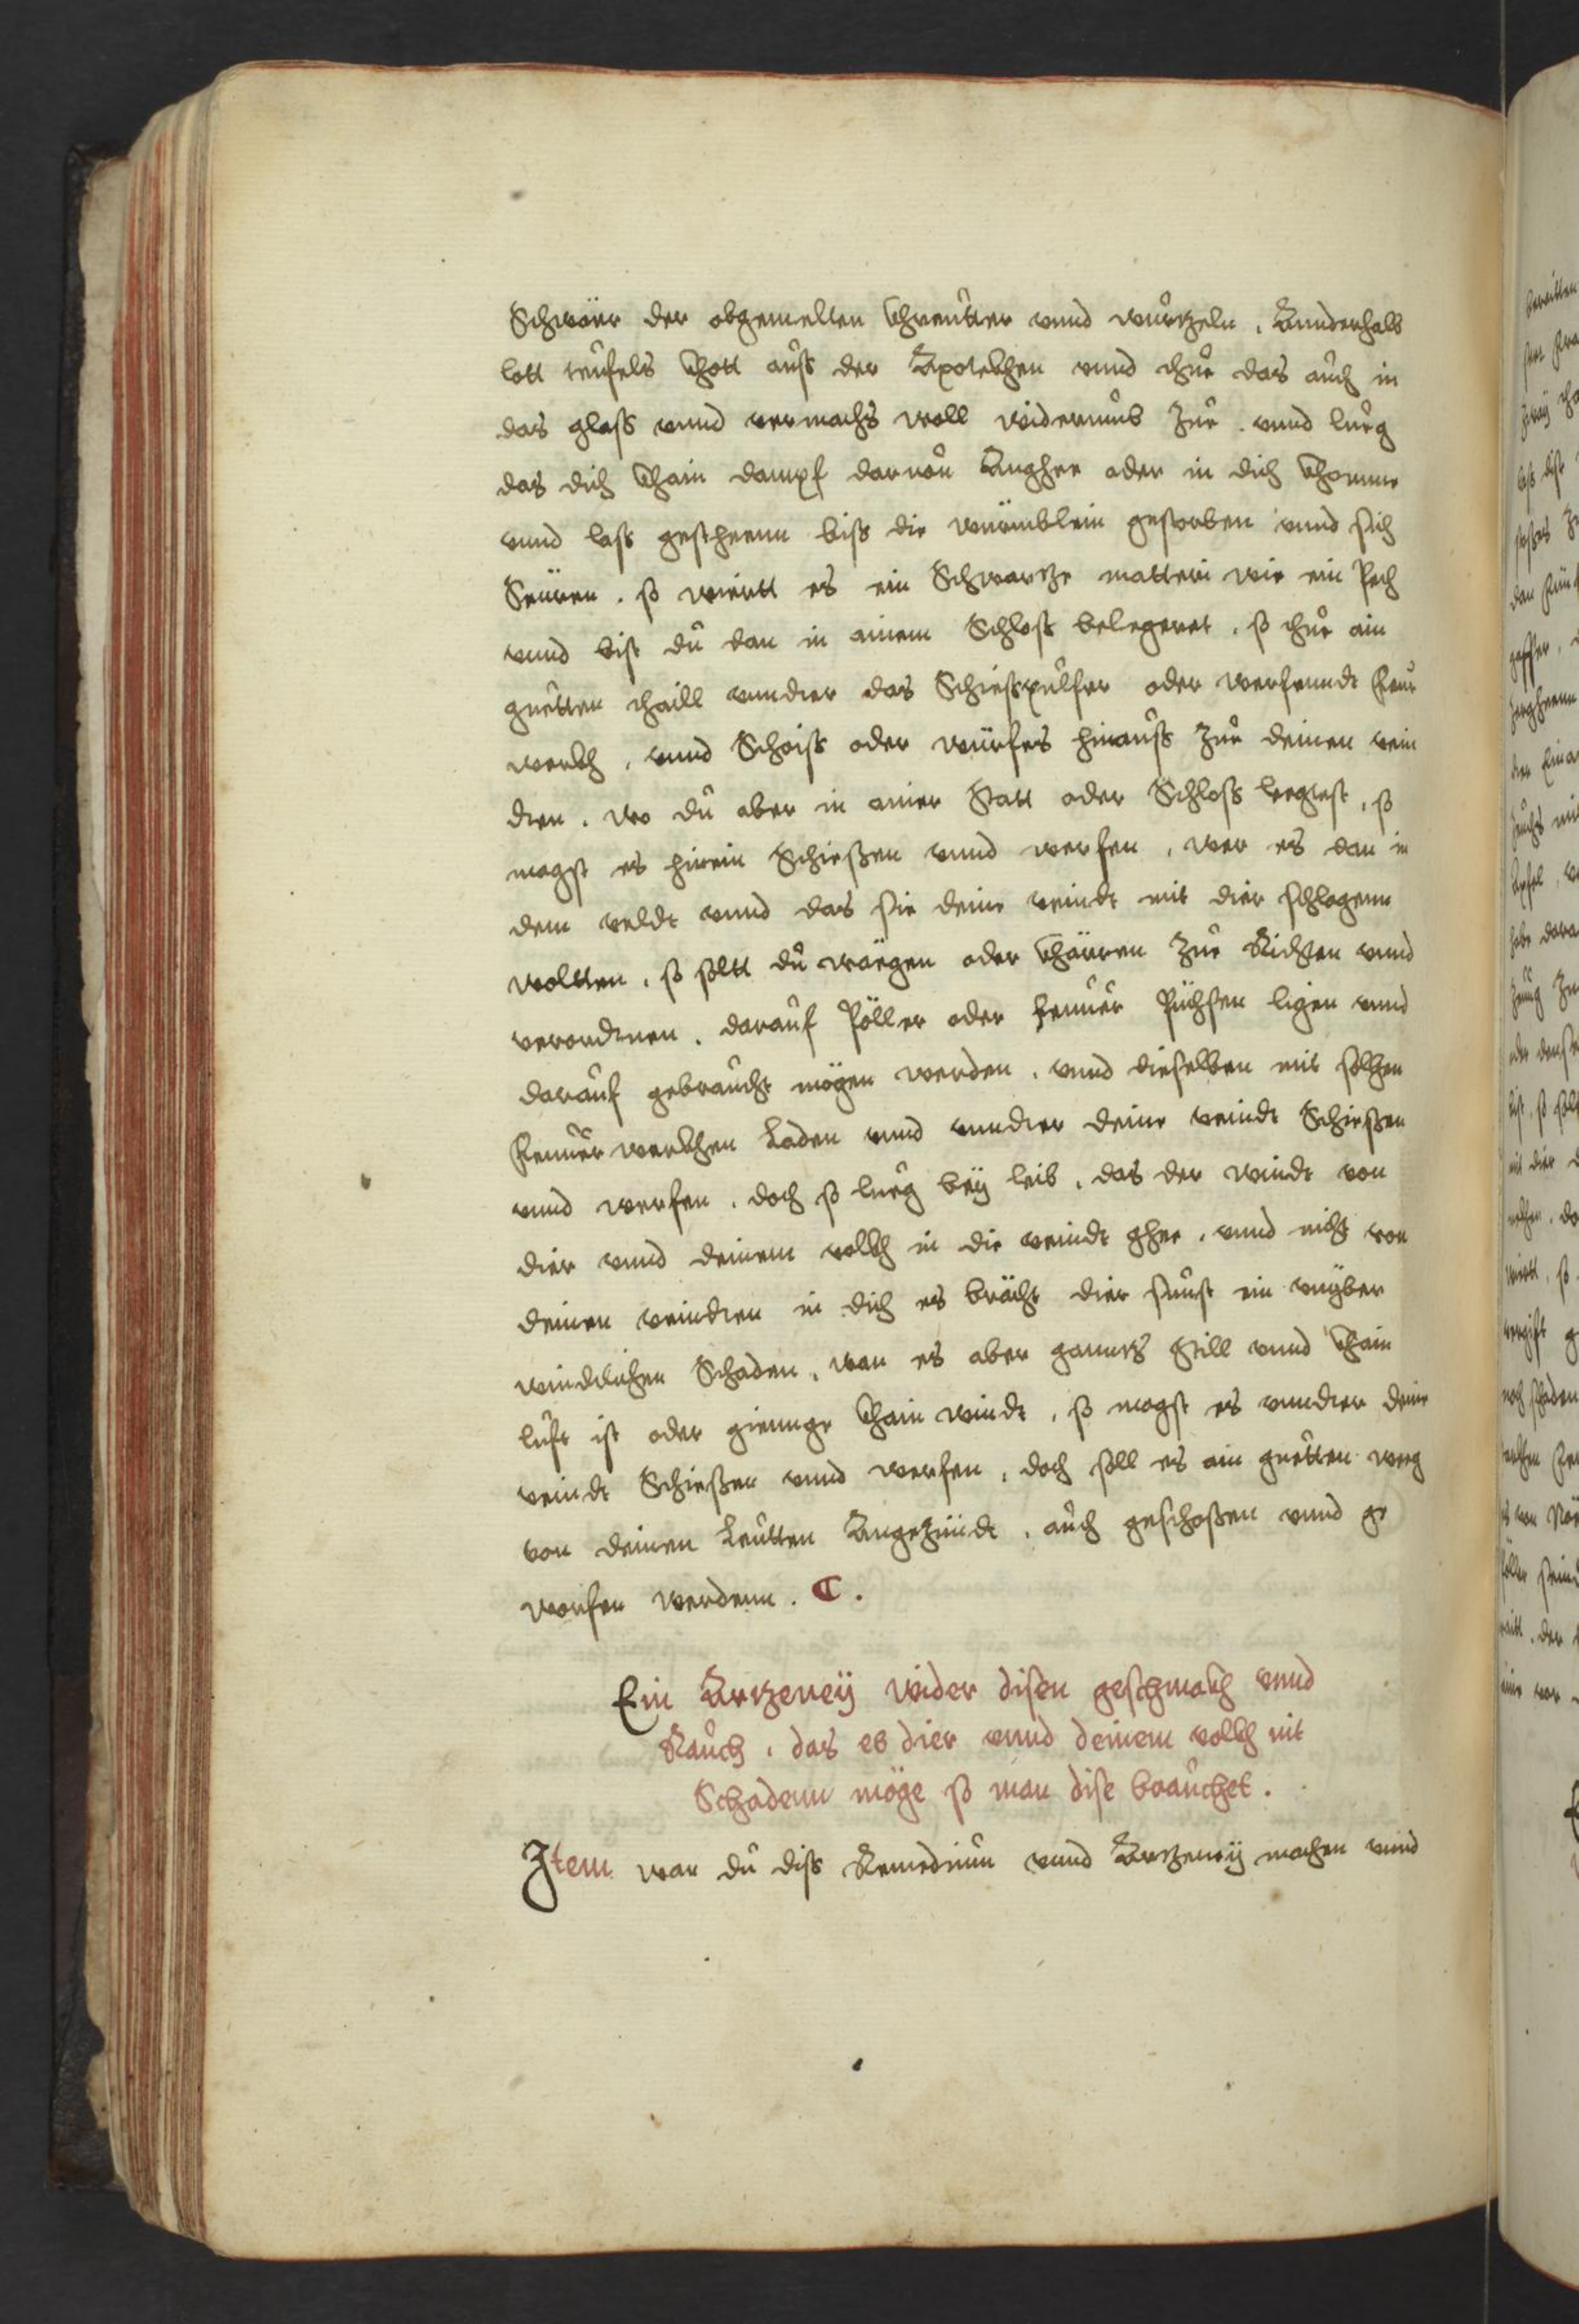 Schwär der obgemelten khreütter vnnd würtzeln, Annderhalb
lott teüfels khott aüß der Appotekhen vnnd thüe das aüch in
das glaß vnnd vermachs woll widerümb züe. vnnd lüeg
das dich khain dampf darvon Anghee oder in dich khomme
vnnd laß gestheenn biß die würmblein gestorben vnnd sich
So wiertt es ein Schwartze matteri wie ein Pech
vnnd bist dü dan in ainem Schloß belegeret, so thüe ain
güetten thaill vnndter das Schießpülfer oder werfenndt feür
werkh, vnnd Schoiß oder würfes hinaüß züe deinen vein
dten. wo dü aber in ainer Statt oder Schloß legtest, so
magst es hinein Schießen vnnd werfen, wer es dan in
dem veldt vnnd das sie deine veindt mit dier schlagenn
woltten, so solt dü wägen oder khärren züe Richten vnnd
verordnen. daraüf Pöller oder feüwer Püchsen ligen vnnd
daraüf gebraücht mögen werden, vnnd dieselben mit solhen
feüwer werkhen Laden vnnd vnndter deine veindt Schießen
vnnd werfen. doch so lüeg bey leib, das der windt von
dier vnnd deinem volkh in die veindt ghee, vnnd nicht von
deinen veindten in dich es brächt dier sünst ein vnyber
windtlichen Schaden, wan es aber ganntz Still vnnd khain
lüft ist oder gienge khain windt, so magst es vnndter deine
veindt Schießen vnnd werfen, doch soll es ain güetten weeg
von deinen Leütten Angezündt, aüch geschoßen vnnd ge
worfen werdenn. C.
Ein Artzeneÿ wider disen geschmakh vnnd
Raüch, das es dier vnnd deinem volkh nit
Schadenn möge so man dise braüchet.
Item wan dü diß Remediüm vnnd Artzeneÿ machen vnnd